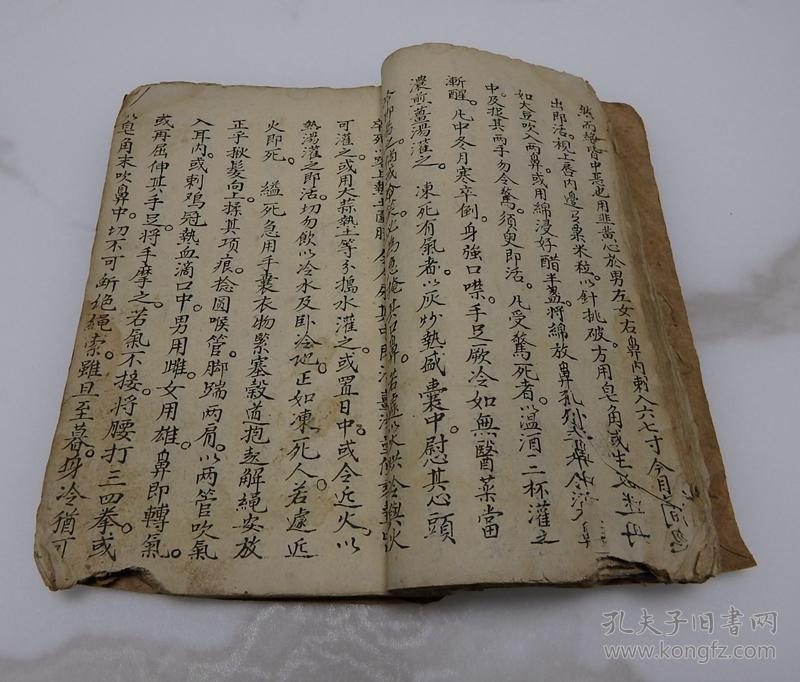 然而
昏中惡也用韭黃心於男左女右鼻内刺入六七寸令目
出即活。視上唇内邊
粟米粒。以針挑破。方用皂角或生
如大豆吹入兩鼻。或用綿浸好醋半盞。將綿放鼻孔
中及捉其兩手勿令驚。須臾即活。凡受驚死者。以温酒二杯灌之
漸醒。凡中冬月寒卒倒。身強口噤。手足厥冷如無醫藥當
濃煎薑湯灌之。凍死有氣者。以灰炒熱盛囊中慰其心頭
可灌之或用大蒜熱土等分搗水灌之。或置日中或令近火。以
熱湯灌之即活。切勿飲以冷水及卧冷地。正如凍死人若處近
火即死。縊死急用手囊衣物緊塞穀道抱起解繩安放
正乎揪髮向上揉其項痕。捻圓喉管。脚踹兩肩。以兩管吹氣
入耳内。或刺鸡冠熱血滴口中。男用雌。女用雄。鼻即轉氣。
或再屈伸其手足。將手摩之。若氣不接。將腰打三四拳。或
皂角末吹鼻中。切不可断絶繩索。雖旦至暮。身冷猶可
孔夫子旧书网
www.kongfz.com